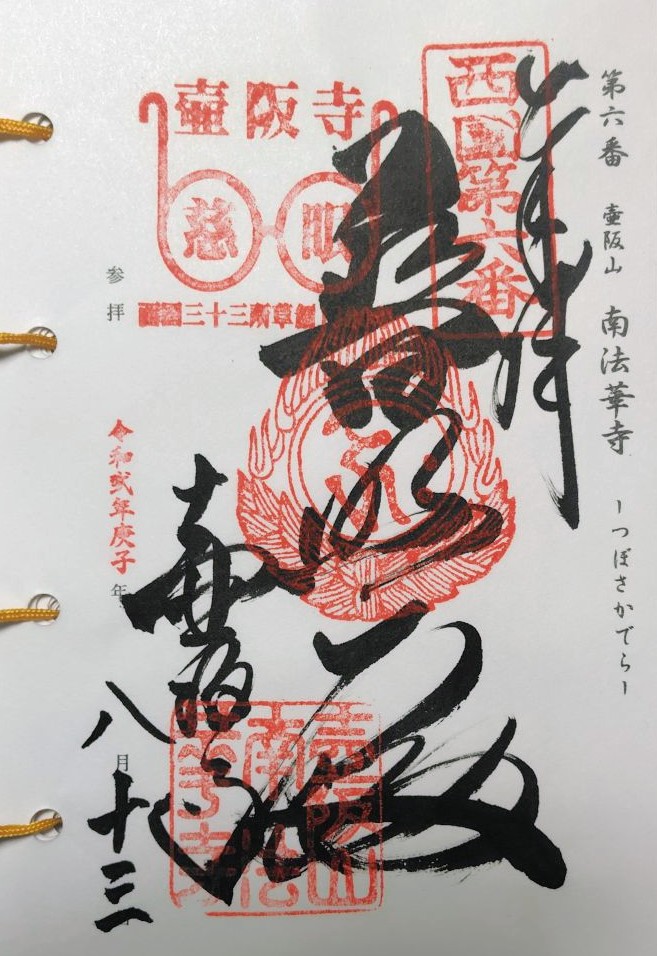 第六番 壺阪山 南法華寺 ーつぼさかでらー
奉拝
西國第六番
普照殿
壺阪寺
慈眼
三十三所草創
壺阪山
南法
華寺
壷阪寺
参拝
令和弐年庚子年
八月十三